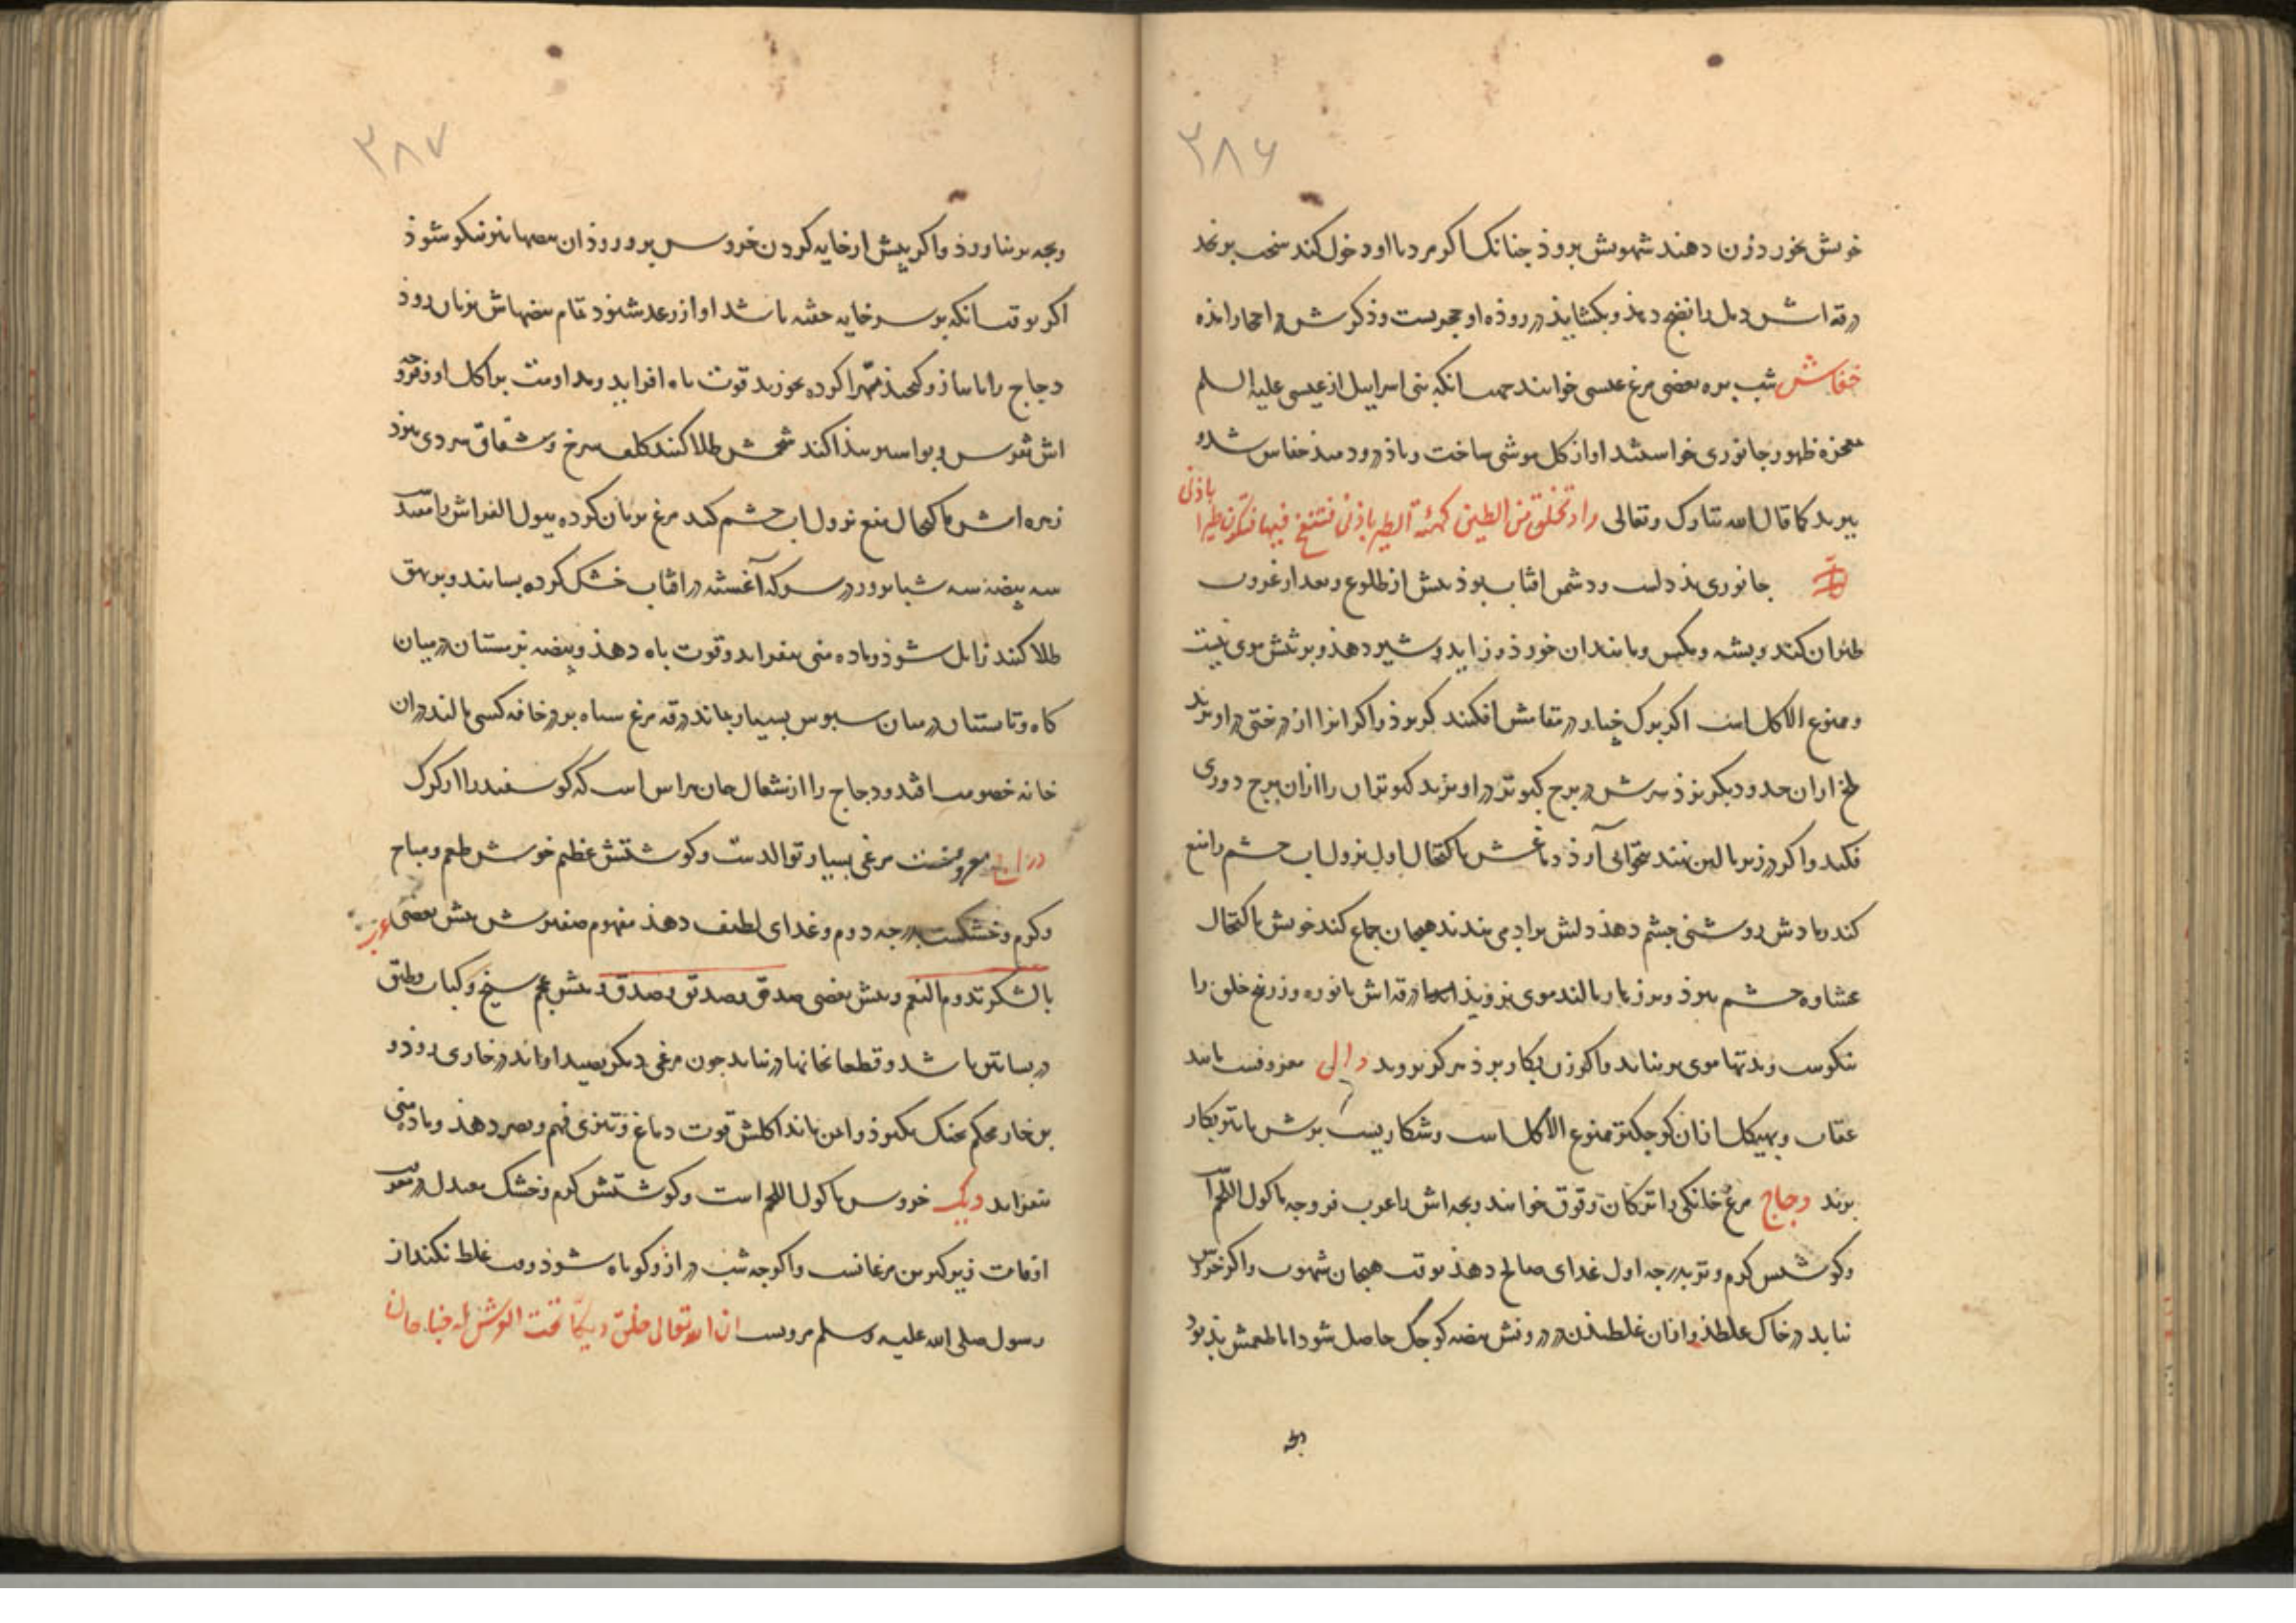 ۳۸۶
خونش بخورد زن دهند شهوتش برود جنانک اکر مرد با او دخول کند سخت برنجد
درقه اش دمل را نضج دهذ و بکشایذ در روذه او حجریست و ذکرش در احجار امذه
خفاش شب بره بعضی مرغ عیسی خوانند جهت انکه بنی اسرایل از عیسی علیه السلم
معجزه ظهور جانوری خواستند او از کل موشی ساخت و باذ در و دمید خفاش شد و
ببرید کما قال الله تبارک و تعالی واذ تخلق من الطین کهیئة الطیر باذنی فتنفخ فیها فتکون طیرا باذنی
جانوری بذ دلست و دشمن افتاب بوذ بیش از طلوع و بعد از غروب
طیران کند و بشه و مکس و مانند ان خورذ و زاید و شیر دهذ و بر تنش موی نیست
و ممنوع الاکل است اکر برک خیار در مقامش افکنند کریزذ و اکر انرا از درختی در اویزند
ملخ از ان حدود دیکر نرذ سرش در برج کبوتر در اویزند کبوتران را از ان برج دوری
فکند و اکر در زیر بالین نهند بیخوابی آرذ دماغش باکتحال اول نزول اب چشم را نفع
کند و مادش روشنی چشم دهذ دلش بر ادمی بندند هیجان جماع کند خونش باکتحال
عشاوه چشم ببرذ و بر زهار مالند موی نرویذ درقه اش با نوره و زرنیخ خلق را
نیکوست زند تنها موی بر نیاید و اکر زن بکار برذ هرکز نروید دال معروفست مانند
عقاب و بهیکل از ان کوجکتر ممنوع الاکل است و شکاریست برش با تیر بکار
برند دجاج مرغ خانکی را ترکان دقوق خوانند و بجه اش را عرب فروجه ماکول اللحم است
و کوشتش کرم و تر بدرجه اول غدای صالح دهذ بوقت هیجان شهوت و اکر خروس
نیابد در خاک غلطذ و از ان غلطیذن در درونش بیضه کوجک حاصل شود اما طعمش بذ بود
بجه
۳۸۷
و بجه بر نیاورذ و اکر بیش از خایه کردن خروس بر و روذ ان بیضها نیز نیکو شوذ
اکر بوقت انکه بر سر خایه خفته باشد اواز رعد شنود تمام بیضهاش بزیان روذ
دجاج را با بیاز و کنجد مهرا کرده بخورند قوت باه افزاید و مداومت بر اکل او زفرو
اش نقرس و بواسیر پیدا کند شحمش طلا کنند کلف سرخ و شقاق سردی ببرذ
زهره اش باکتحال منع نزول اب چشم کند مرغ بریان کرده ببول الفراش را مفید
سه بیضه سه شبانروز در سرکه آغشته در افتاب خشک کرده بسایند و بر بهق
طلا کنند زایل شوذ و ماده منی بیفزاید و قوت باه دهذ و بیضه بزمستان در میان
کاه و تابستان در میان سبوس بسیار بماند درقه مرغ سیاه بر در خانه کسی مالند در ان
خانه خصومت افتد و دجاج را از شغال جان هراس است که کوسفند را از کرک
دراج معروفست مرغی بسیار توالدست و کوشتش عظیم خوش طعم و مباح
و کرم و خشکست بدرجه دوم و غدای لطیف دهذ مفهوم صفیرش بیش بعضی عرب
بالشکر تدوم النعم و بیش بعضی صدق و صدق و صدق و بیش عجم سیخ و کباب و طبق
در بساتین باشد و قطعا بخانها در نیاید جون مرغی دیکر بصید او اند در خاری روذ و
بن خار محکم بجنک بکیرذ و ایمن باند اکلش قوت دماغ و تیزی فهم و بصر دهذ و ماده منی
بیفزاید دیک خروس ماکول اللحم است و کوشتش کرم و خشک بعدل در معرفت
اوقات زیرکترین مرغانست و اکرجه شب دراز و کوتاه شوذ وقت غلط نکند از
رسول صلی الله علیه وسلم مرویست ان الله تعالی خلق دیکا تحت العرش له جناحان